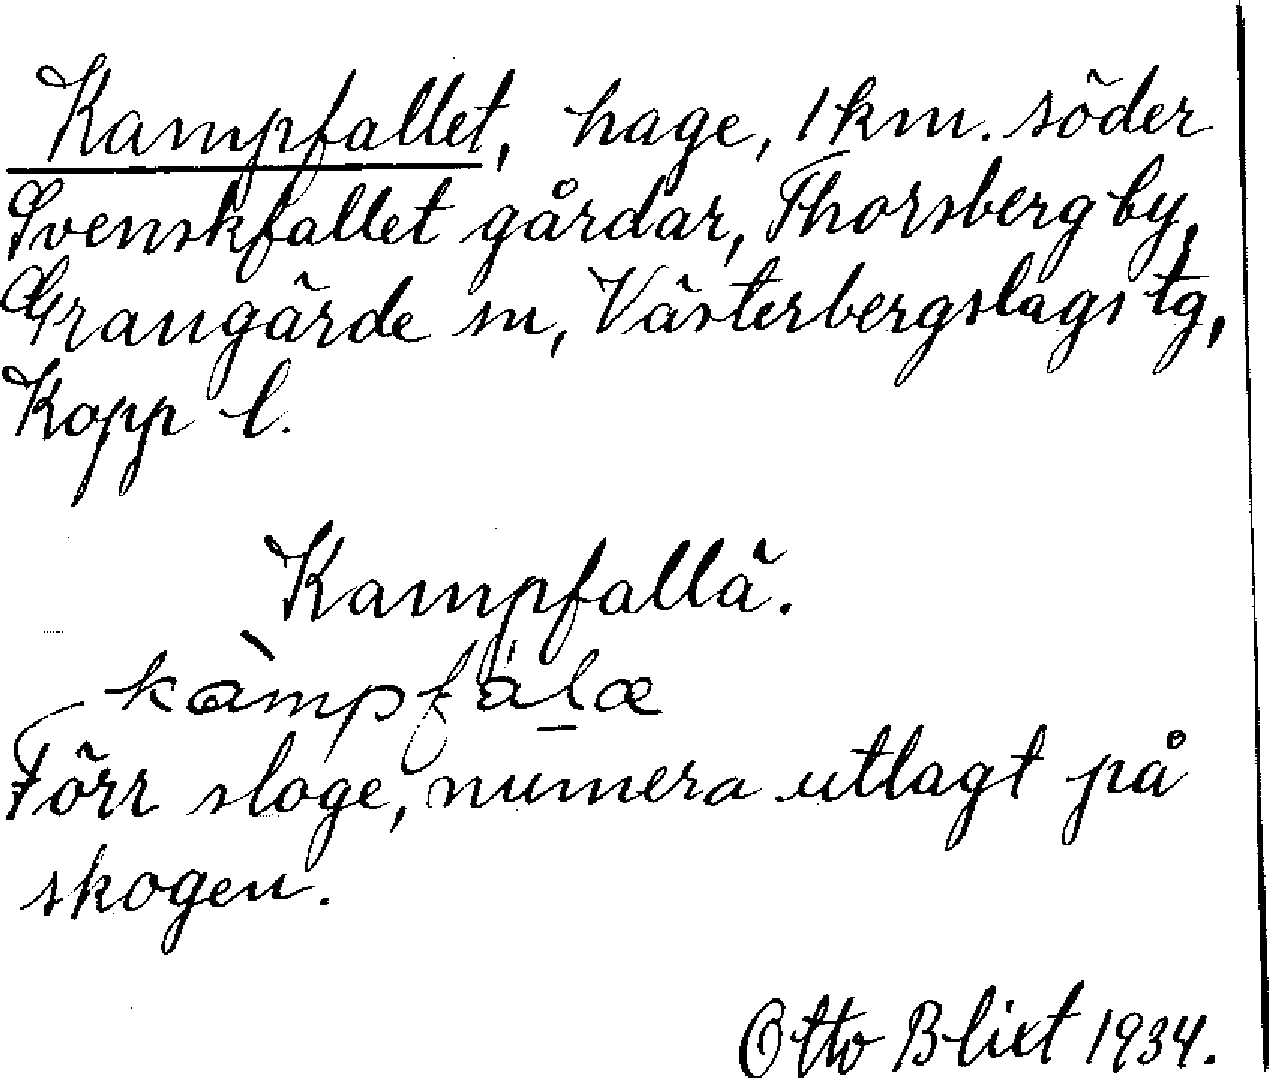 Kampfallet, hage, 1 km. söder
Svenskfallet gårdar, Thorsberg by,
Grangärde sn, Västerbergslags tg,
Kopp l.
Kampfallä.
kàmpfälæ
Förr sloge, numera utlagt på
skogen.
Otto Blixt 1934.